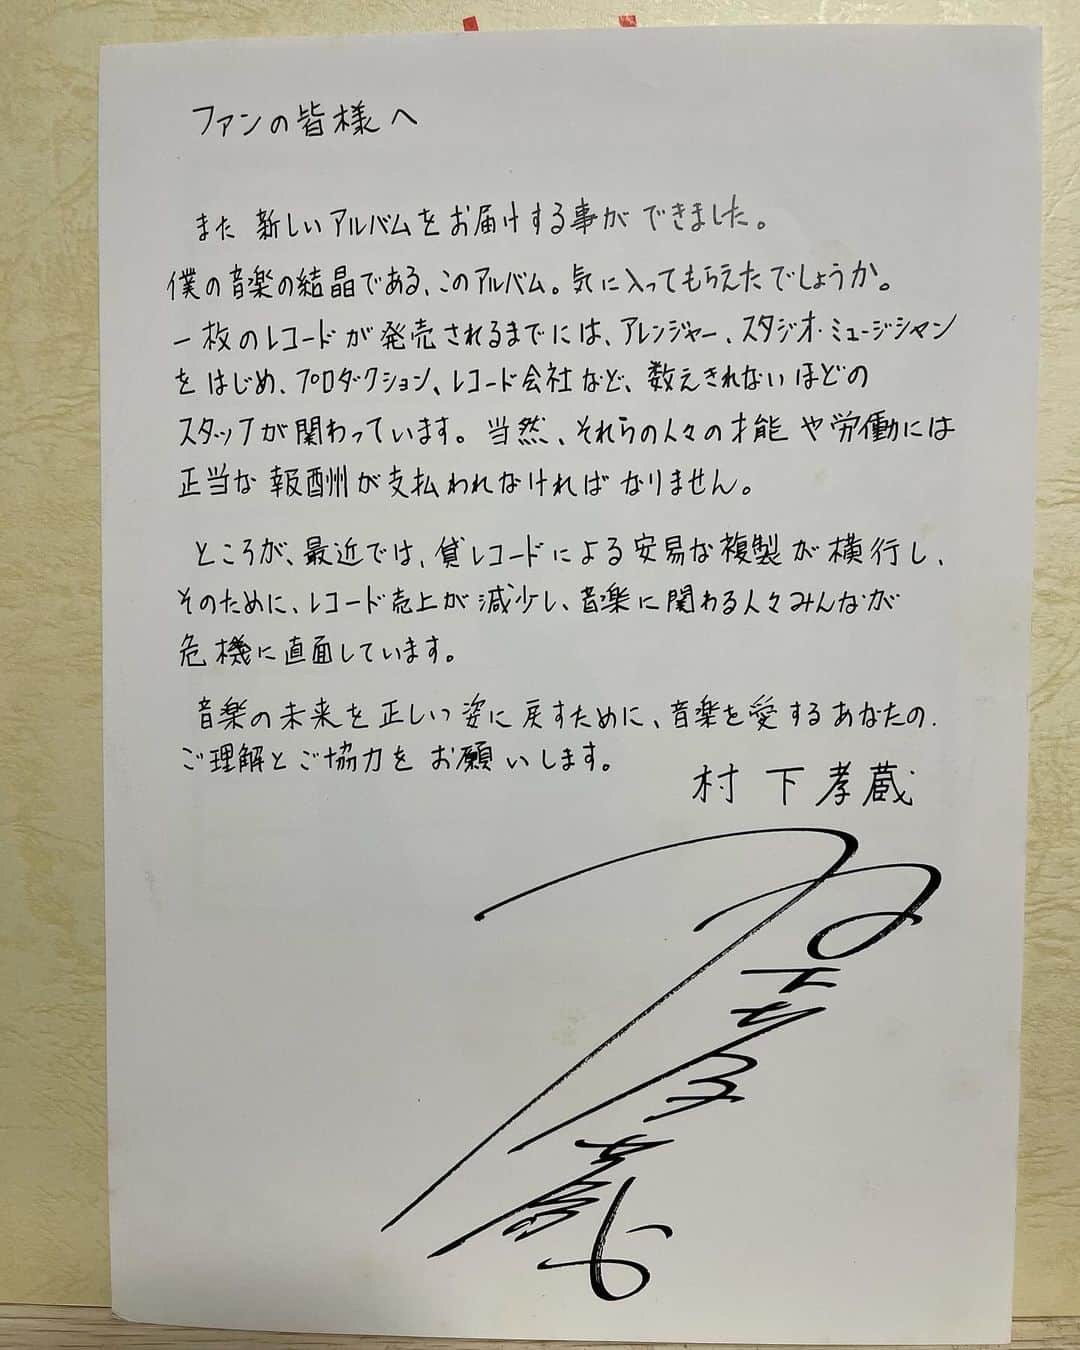 ファンの皆様へ
また 新しいアルバムをお届けする事ができました。
僕の音楽の結晶である、このアルバム。気に入ってもらえたでしょうか。
一枚のレコードが発売されるまでには、アレンジャー、スタジオ・ミュージシャン
をはじめ、プロダクション、レコード会社など、数えきれないほどの
スタッフが関わっています。当然、それらの人々の才能や労働には
正当な報酬が支払われなければなりません。
ところが、最近では、貸レコードによる安易な複製が横行し、
そのために、レコード売上が減少し、音楽に関わる人々みんなが
危機に直面しています。
音楽の未来を正しい姿に戻すために、音楽を愛するあなたの、
ご理解とご協力をお願いします。
村下孝蔵
村下孝蔵